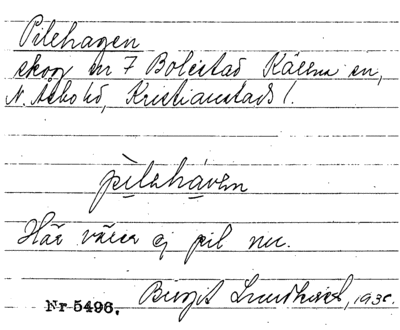 Pilehagen
skog en 7 Bolestad Källna sn,
N. Åsbo hd, Kristianstads l.
pìlehávən
Här växer ej pil nu.
Nr 5496. Birgit 193